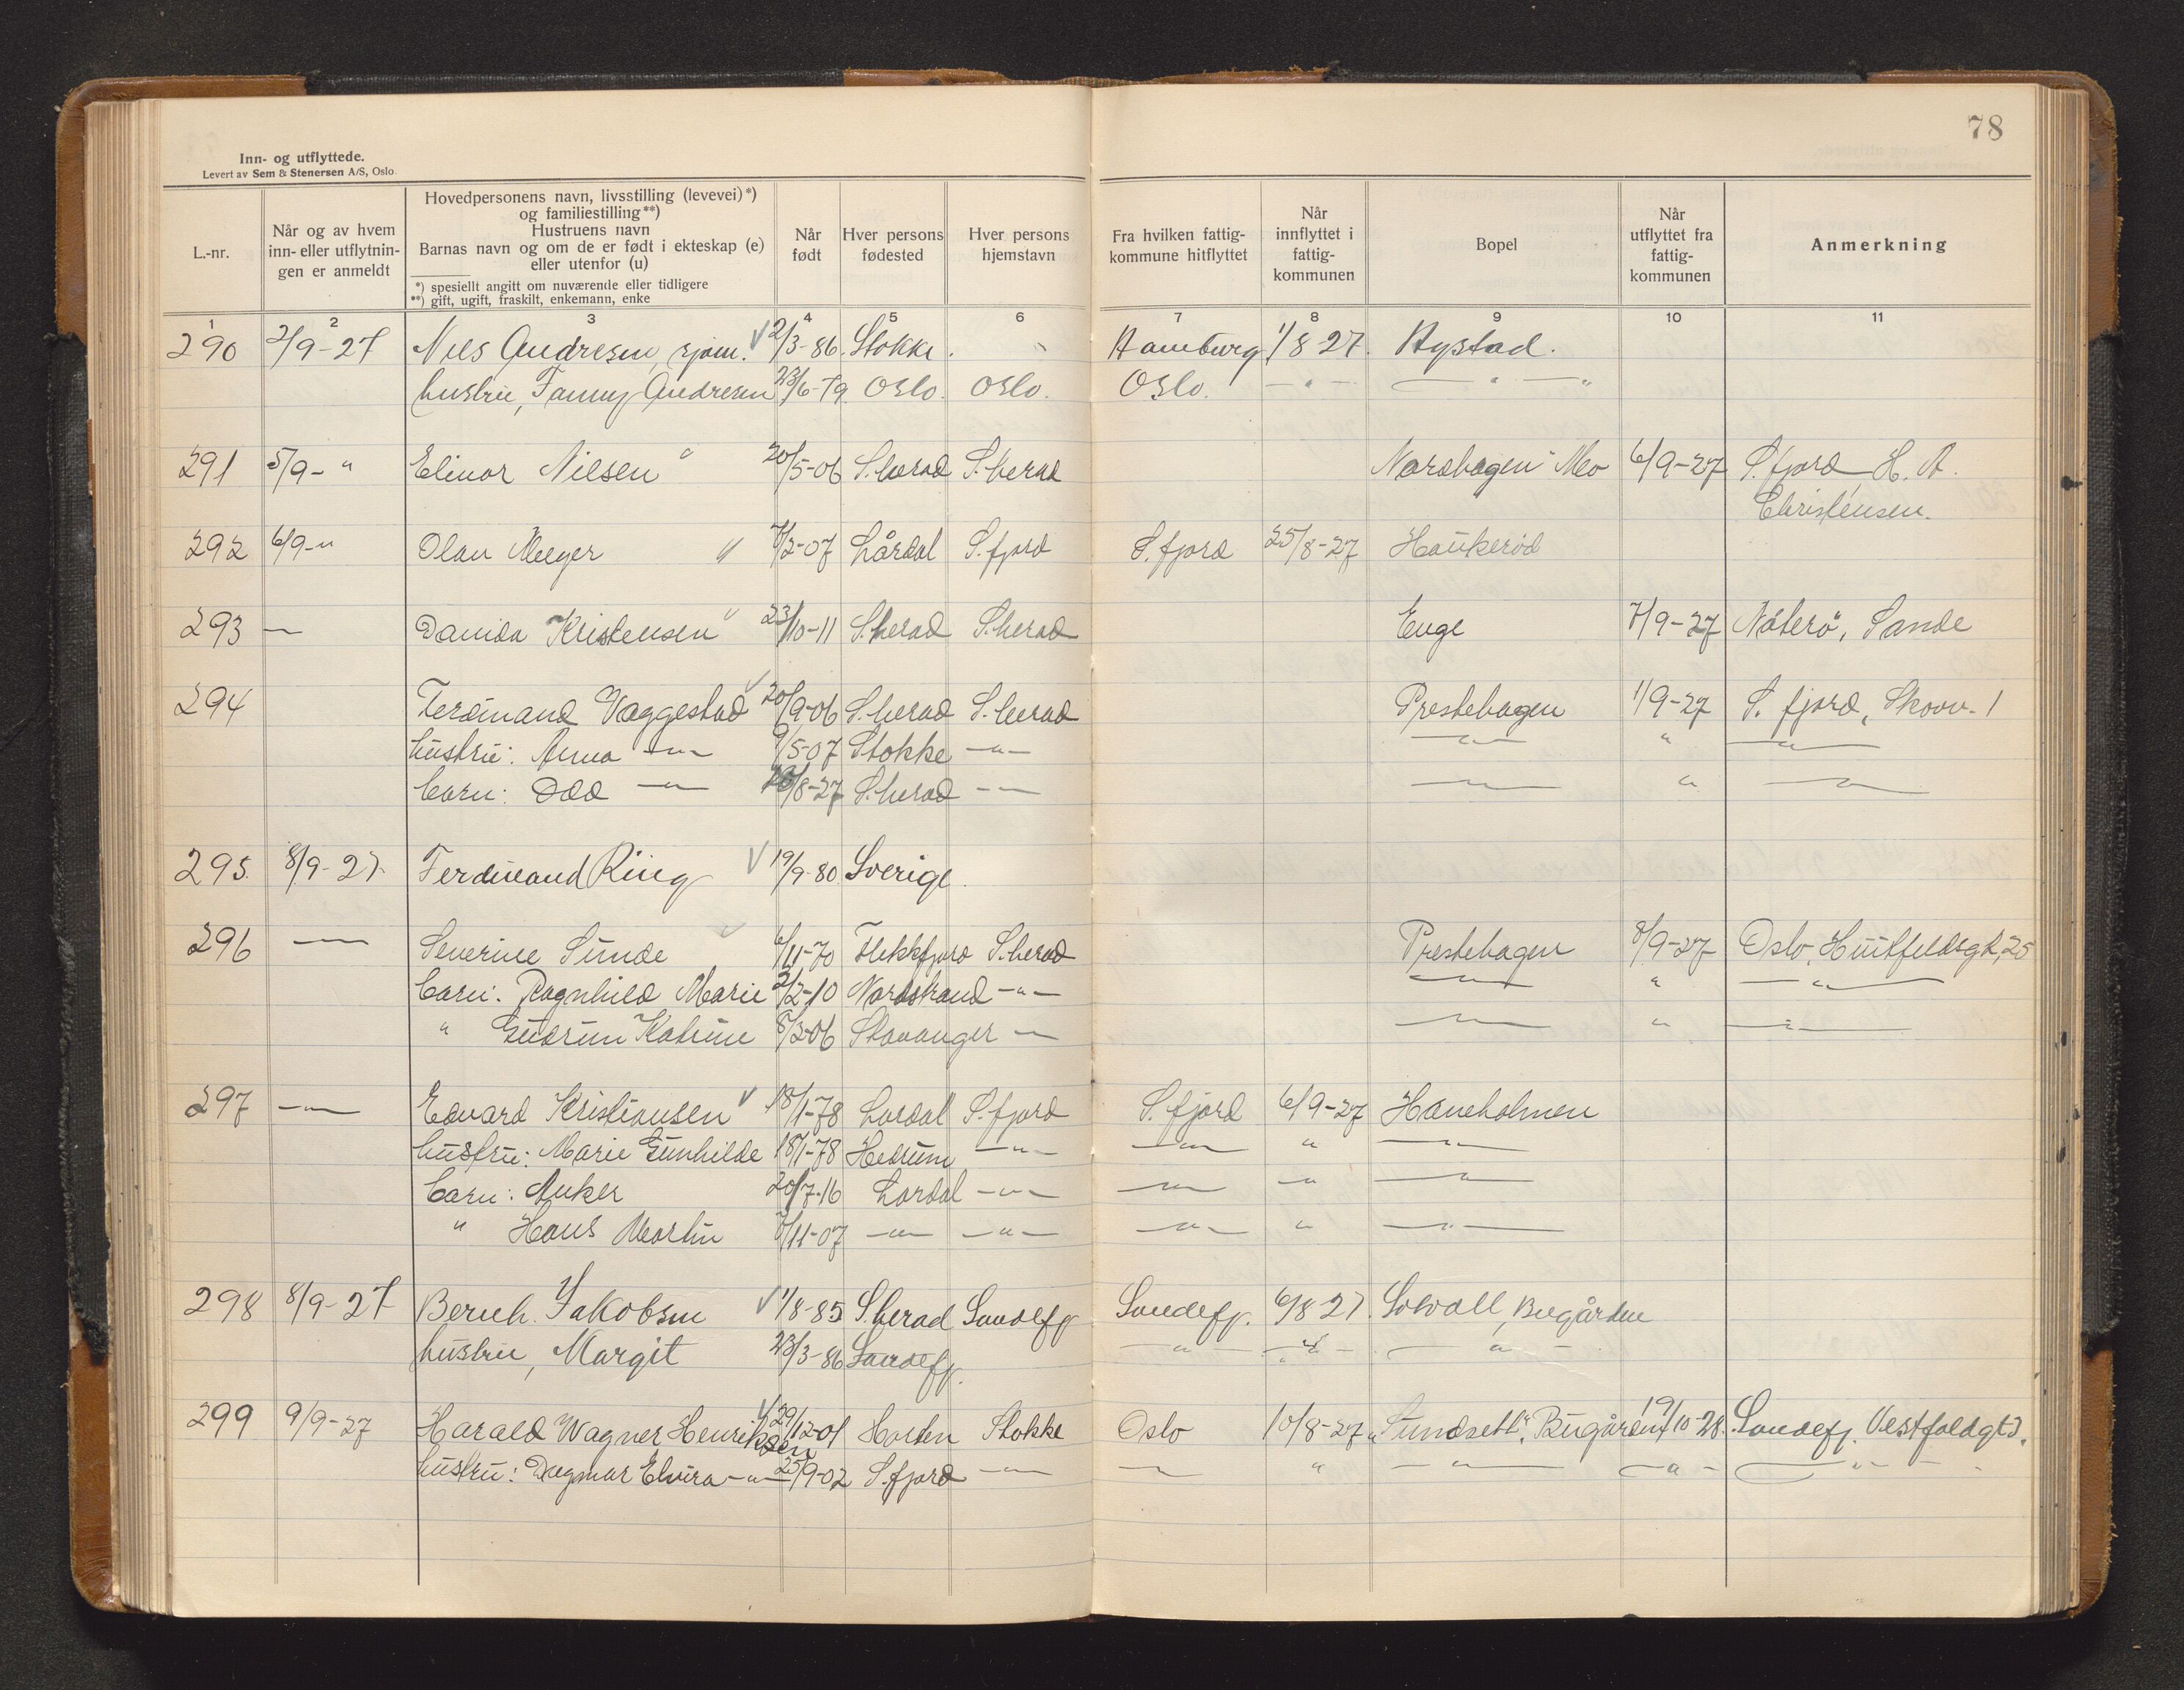 78
Inn- og utflyttede.
Levert av Sem & Stenersen A/S, Oslo.
L.-nr.
Når og av hvem inn- eller utflytnin-gen er anmeldt
Hovedpersonens navn, livsstilling (levevei)*) og familiestilling**) Hustruens navn Barnas navn og om de er født i ekteskap (e) eller utenfor (u)
*) spesiellt angitt om nuværende eller tidligere
**) gift, ugift, fraskilt, enkemann, enke
Når født
Hver persons fødested
Hver persons hjemstavn
Fra hvilken fattig-kommune hitflyttet
Når innflyttet i fattig-kommunen
Bopel
Når utflyttet fra fattig-kommunen
Anmerkning
1 2 3 4 5 6 7 8 9 10 11
290 2/9-27 Nils Andresen, sjøm. 2/3-86 Stokke. Hamburg 1/8 27. Nystad.
hustru, Fanny Andresen 23/6-79 Oslo. Oslo. Oslo. — " — — " — "
291 5/9- " Elinor Nilsen 20/5-06 S.herad S.herad Nordhagen Mo 6/9-27 S.fjord H. A.
Christensen.
292 6/9-" Olav Meyer 7/2-07 Lårdal S.fjord S.fjord 25/8-27 Haukerød
293 — Davida Kristensen 23/10-11 S.herad S.herad Enge 7/9-27 Nøterø, Sande
294 Ferdinand Vaggestad 20/9-06 S.herad S.herad Prestehagen 1/9-27 S. fjord, Skovv. 1
hustru: Anna —"— 9/5-07 Stokke —"— —"— " —"—
barn: Odd —"— /8-27 S.herad —"— —"— " —"—
295. 8/9-27. Ferdinand Ring 19/9-80 Sverige.
296 —"— Severine Sunde 6/11-70 Flekkfjord S.herad Prestehagen 8/9-27 Oslo, Huitfeldsgt. 25
barn: Ragnhild Marie 2/2-10 Nordstrand —"— —"— " —"—
" Gudrun Katrine 8/3-06 Stavanger —"— —"— " —"—
297 —"— Edvard Kristiansen 18/1-78 Lardal S.fjord S.fjord 6/9-27 Haneholmen
hustru: Marie Gunhilde 18/1-78 Hedrum —"— —"— " —"—
barn: Anker 20/7-16 Lardal —"— —"— " —"—
" Hans Martin 7/11-07 —"— —"— —"— " —"—
298 8/9-27 Bernh. Jakobsen 1/8-85 S.herad Sandefj. Sandefj. 6/8 27. Solvoll, Bugården
hustru, Margit 23/3-86 Sandefj. —"— —"— —"—
299 9/9-27 Harald Wagner Henriksen 29/12-01 Horten Stokke Oslo 10/8-27 "Sundsett", Bugården 19/10-28. Sandefj. Vestfoldgt.
hustru: Dagmar Elvira —"— 25/9-02 S.fjord —"— —"— " —"— —"— —"—